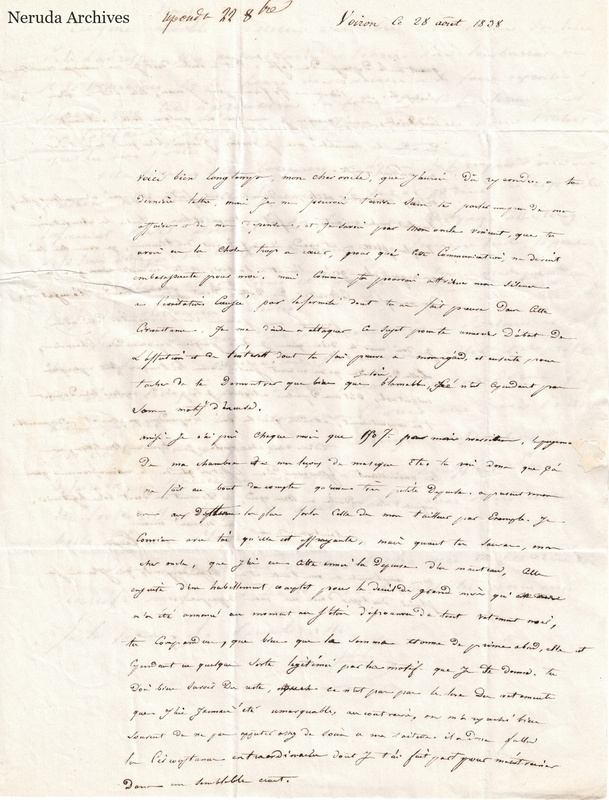 Neruda Archives
repondu 22 8bre
Voiron ce 28 août 1838
Voici bien longtemps, mon cher oncle, que j'aurai dû repondre à ta
dernière lettre, mais je ne pouvoir t'ecrire sans te parler un peu de mes
affaires et de me et je savois par mon oncle vincent, que tu
avois eu la chose trop à coeur, pour que cette communication ne devint
embarassante pour moi. mais comme tu pourrois attribuer mon silence
à l'irritation causée par la fermeté dont tu as fait preuve dans cette
Circonstance. Je me décide à attaquer ce sujet pour te remercier d'abord de
L'affection et de l'intérêt dont tu fais preuve à mon égard, et ensuite pour
tacher de te Demontrer que bien que blamable, n'est cependant pas
sans motif d'excuse.
ainsi je n'ai pris chaque mois que 150 f. pour mois
De ma chambre et de mes leçons de musique Etc. tu vois donc que ça
ne fait au bout du compte qu'une très petite Depense. à present
aux la plus forte Celle de mon tailleur par Exemple. Je
Conviens avec toi qu'elle est effrayante, mais quand tu sauras, mon
cher oncle, que j'ai eu cette année la Depense d'un manteau, Celle
ensuite d'un habillement complet pour le deuil de grand mère qui
m'a été annoncé au moment où j'étois depourvu de tout vetement noir,
tu Comprendras, que bien que la somme etonne de prime abord, elle est
Cependant en quelque sorte legitimée par les motifs que je te donne. tu
dois bien savoir du reste, que ce n'est pas par le luxe des vetements
que j'ai jamais été remarquable, au contraire, on m'a reproché bien
souvent de ne pas apporter assez de soins à ma toilette il a donc fallu
la Circonstance extraordinaire dont je t'ai fait part pour
Dans un semblable ecart.